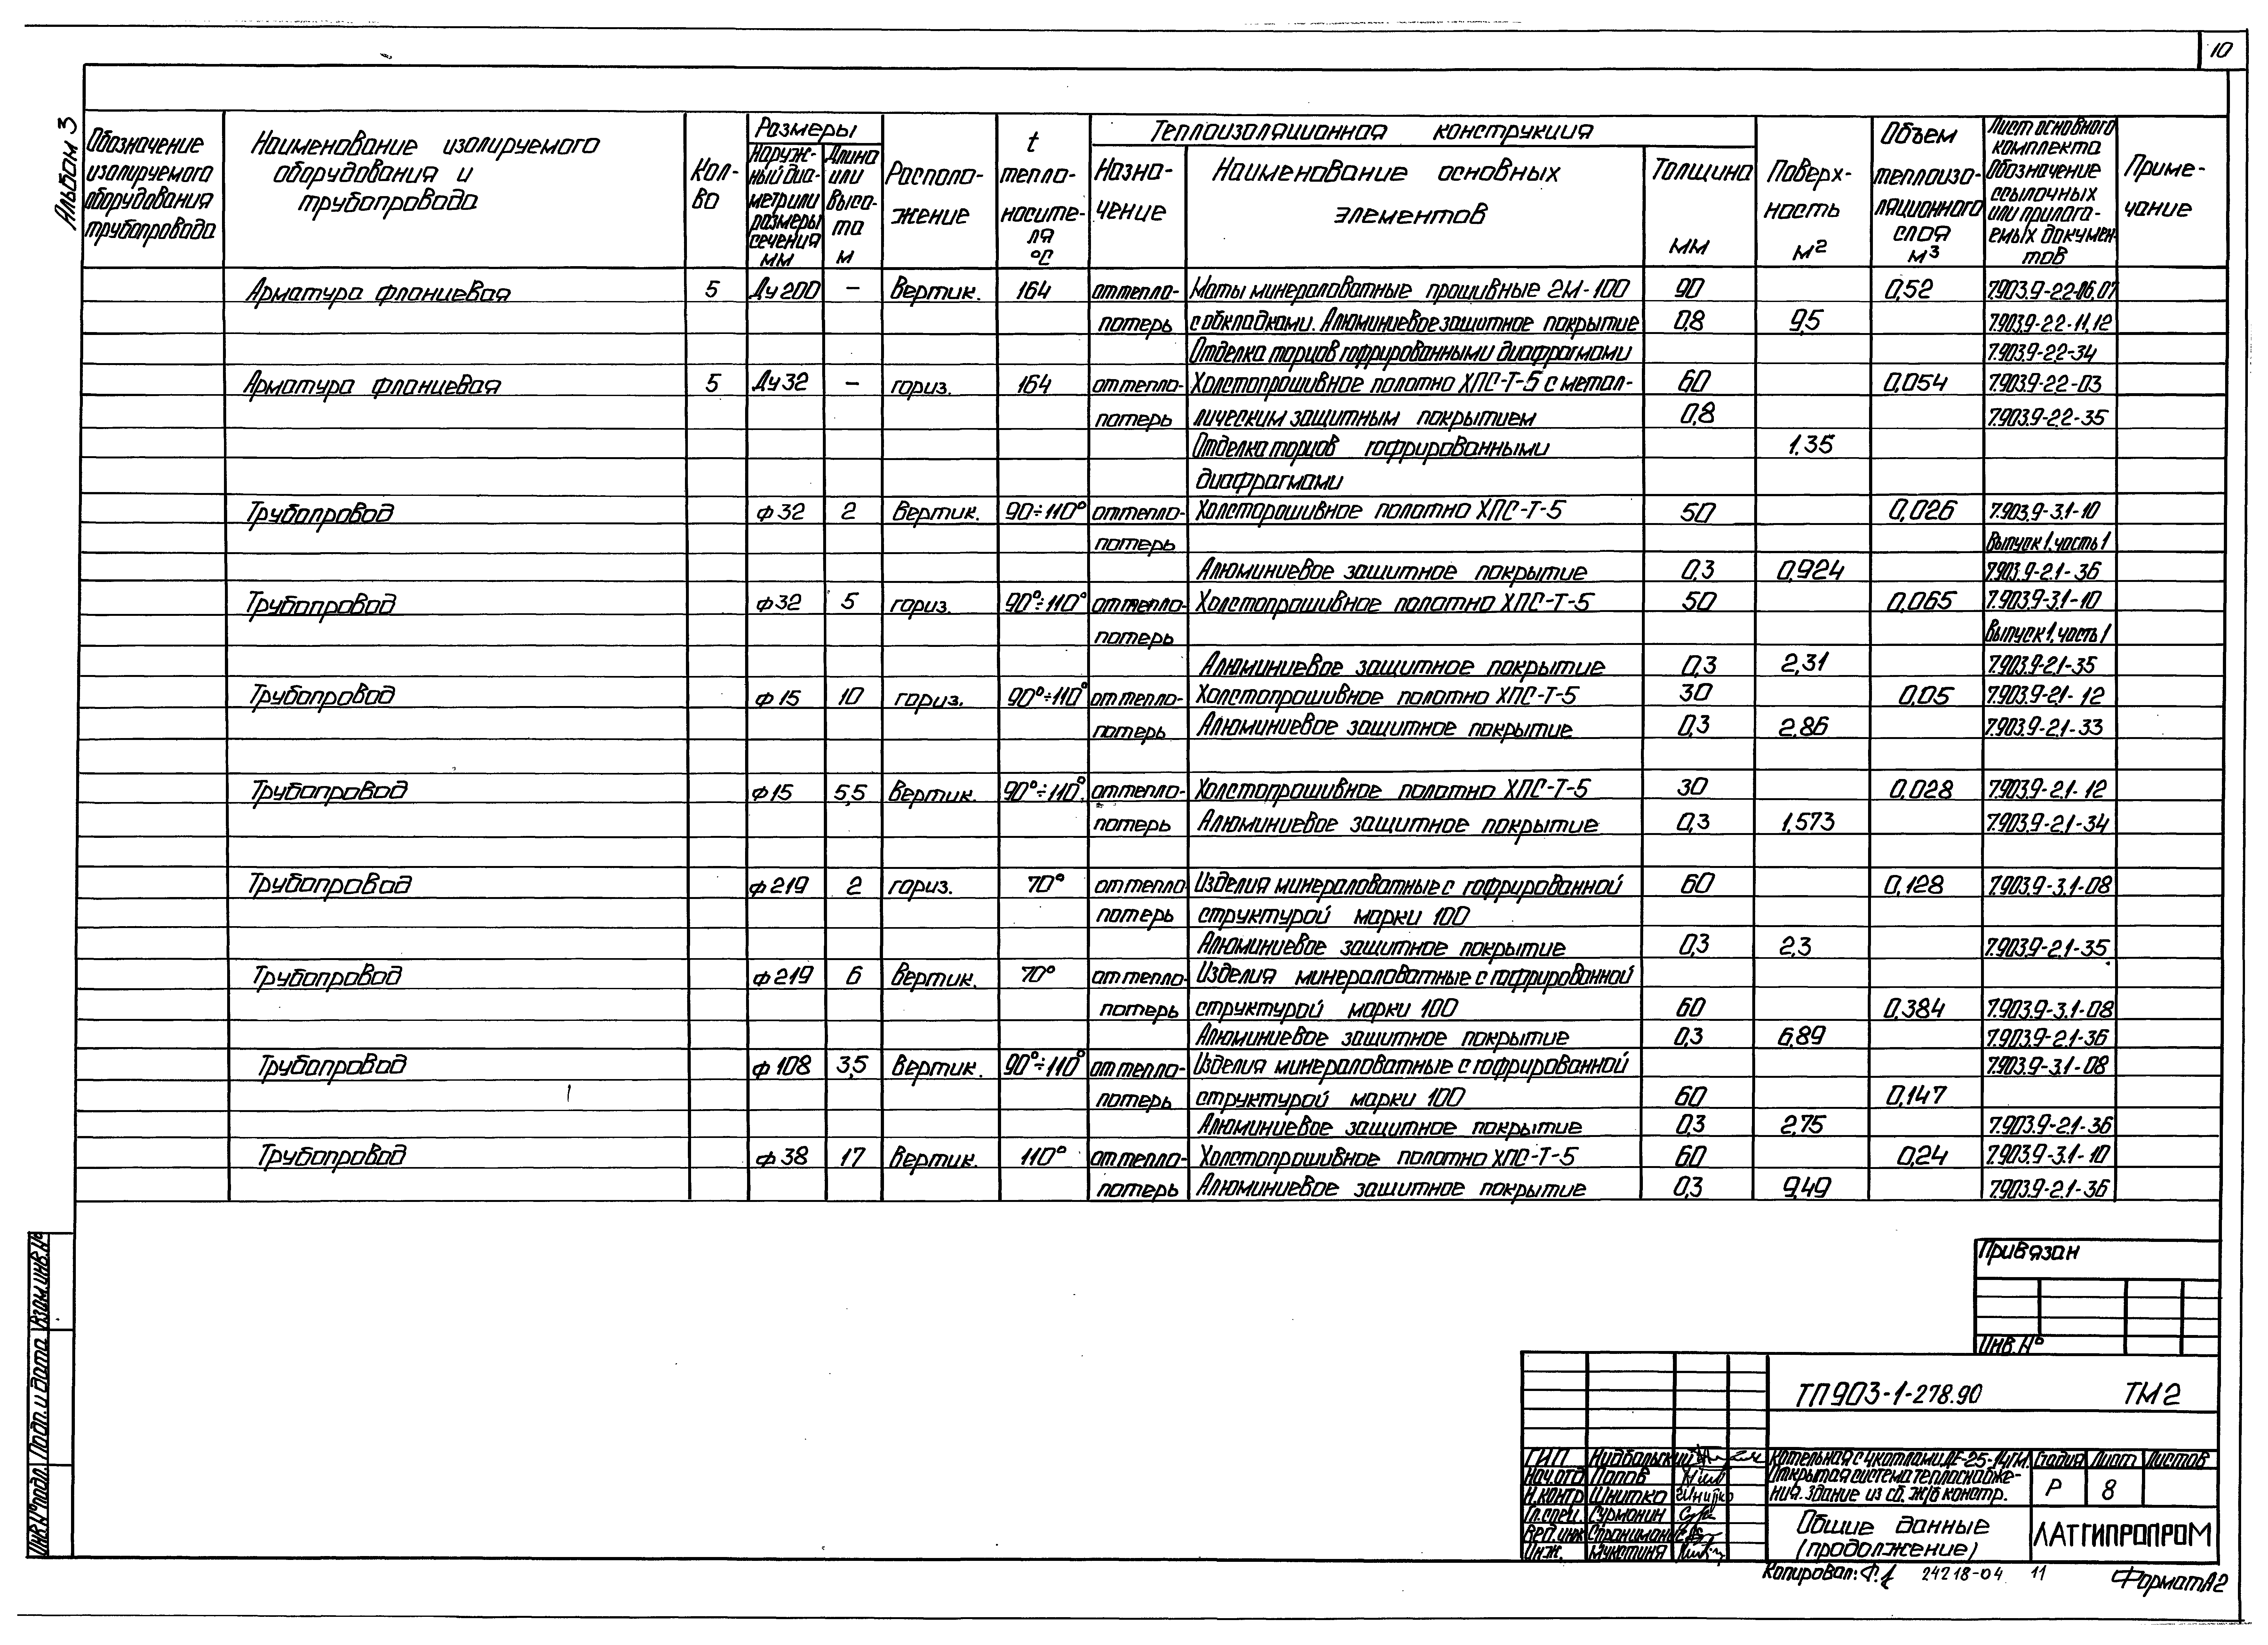 10
Альбом 3
Обозначение изолируемого оборудования трубопровода
Наименование изолируемого оборудования и трубопровода
Кол-во
Размеры
Наруж-ный диа-метр или размеры сечения мм
Длина или высо-та м
Располо-жение
t тепло-носите-ля °C
Теплоизоляционная конструкция
Назна-чение
Наименование основных элементов
Толщина мм
Поверх-ность м²
Объем теплоизо-ляционного слоя м³
Лист основного комплекта Обозначение ссылочных или прилага-емых докумен-тов
Приме-чание
Арматура фланцевая 5 Ду 200 — Вертик. 164 от тепло- Маты минераловатные прошивные 2М-100 90 0,52 7.903.9-2.2-06,07
потерь с обкладками. Алюминиевое защитное покрытие 0,8 9,5 7.903.9-2.2-11,12
Отделка торцов гофрированными диафрагмами 7.903.9-2.2-34
Арматура фланцевая 5 Ду 32 — гориз. 164 от тепло- Холстопрошивное полотно ХПС-Т-5 с метал- 60 0,054 7.903.9-2.2-03
потерь лическим защитным покрытием 0,8 7.903.9-2.2-35
Отделка торцов гофрированными 1.35
диафрагмами
Трубопровод ф32 2 Вертик. 90÷110° от тепло- Холсторошивное полотно ХПС-Т-5 50 0,026 7.903.9-3.1-10
потерь Выпуск 1, часть 1
Алюминиевое защитное покрытие 0,3 0,924 7.903.9-2.1-36
Трубопровод ф32 5 гориз. 90°÷110° от тепло- Холстопрошивное полотно ХПС-Т-5 50 0,065 7.903.9-3.1-10
потерь Выпуск 1, часть 1
Алюминиевое защитное покрытие 0,3 2,31 7.903.9-2.1-35
Трубопровод ф15 10 гориз. 90°÷110° от тепло- Холстопрошивное полотно ХПС-Т-5 30 0,05 7.903.9-2.1-12
потерь Алюминиевое защитное покрытие 0,3 2,86 7.903.9-2.1-33
Трубопровод ф15 5,5 Вертик. 90°÷110° от тепло- Холстопрошивное полотно ХПС-Т-5 30 0,028 7.903.9-2.1-12
потерь Алюминиевое защитное покрытие 0,3 1,573 7.903.9-2.1-34
Трубопровод ф219 2 гориз. 70° от тепло Изделия минераловатные с гофрированной 60 0,128 7.903.9-3.1-08
потерь структурой марки 100
Алюминиевое защитное покрытие 0,3 2,3 7.903.9-2.1-35
Трубопровод ф219 6 Вертик. 70° от тепло- Изделия минераловатные с гофрированной
потерь структурой марки 100 60 0,384 7.903.9-3.1-08
Алюминиевое защитное покрытие 0,3 6,89 7.903.9-2.1-36
Трубопровод ф108 3,5 Вертик. 90°÷110° от тепло- Изделия минераловатные с гофрированной 7.903.9-3.1-08
потерь структурой марки 100 60 0,147
Алюминиевое защитное покрытие 0,3 2,75 7.903.9-2.1-36
Трубопровод ф38 17 Вертик. 110° от тепло- Холстопрошивное полотно ХПС-Т-5 60 0,24 7.903.9-3.1-10
потерь Алюминиевое защитное покрытие 0,3 9,49 7.903.9-2.1-36
Взам. инв. №
Подп. и дата
Инв. № подл.
Привязан
Инв. №
ТП 903-1-278.90 ТМ 2
ГИП Нидбальский
Нач. отд Попов
Н. контр Шнитко
Гл. спец. Сурмонин
Вед. инж
Инж. Мукотиня
Котельная с 4 котлами ДЕ-25-14ГМ.
Открытая система теплоснабже-
ния. Здание из сб. ж/б констр.
Стадия Лист Листов
Р 8
Общие данные
(продолжение)
ЛАТГИПРОПРОМ
Копировал: 24218-04 11
Формат А2